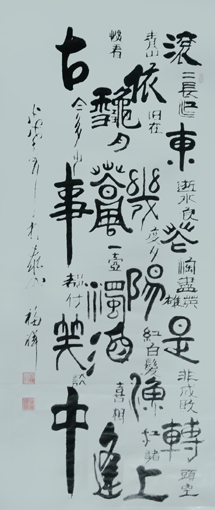 滚二長江東逝水浪花淘盡英雄是非成敗轉頭空
青山依旧在幾度夕陽紅白髮渔樵江渚上
慣看秋月春風一壺濁酒喜相逢
古今多少事都付笑談中